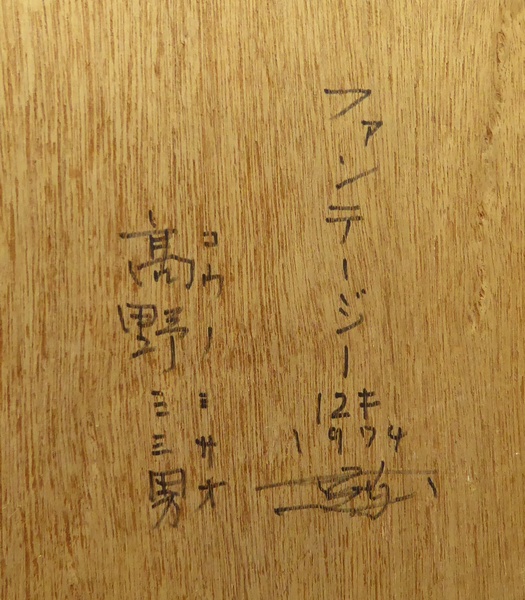 ファンテージー
12キ
1974
コウノミサオ
高野三三男